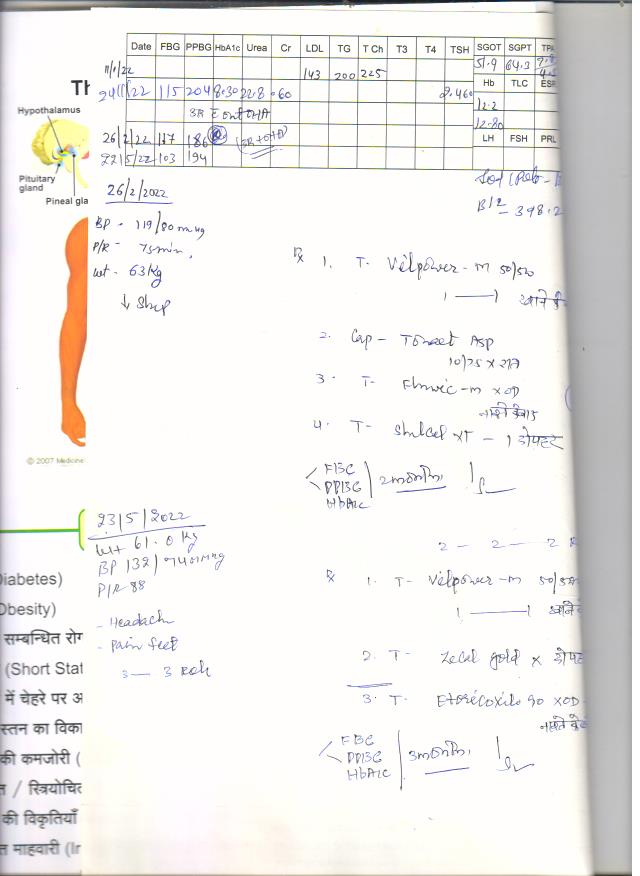 Date FBG PPBG HbA1c Urea Cr LDL TG T Ch T3 T4 TSH SGOT SGPT TPA
11/1/22 143 200 225 51.9 64.3
24/1/22 115 204 8.30 22.8 .60 2.460
Hb TLC ESR
12.2
12.80
26/2/22 117 186
LH FSH PRL
22/5/22 103 194
Hypothalamus
Pituitary
gland
Pineal gla
© 2007 Medicine
26/2/2022
BP - 119/80 mmHg
P/R - 75 min,
wt - 63 kg
↓ Sleep
B12 - 398.2
Rx 1. T- Velpower-M 50/500
1 —— 1 खाने के
2. Cap -
10/75 x रात
3. T- -m x OD
4. T- Shelcal XT - 1 दोपहर
FBG
PPBG
HbA1c
2 month
23/5/2022
Wt 61.0 kg
BP 132/74 mmHg
P/R 88
- Headach
- Pain feet
2 — 2 — 2
Rx 1. T- Velpower-M 50/500
1 —— 1 खाने के
2. T- gold x दोपहर
3. T- Etoricoxib 90 x OD
FBG
PPBG
HbA1c
3 month
Diabetes)
Obesity)
सम्बन्धित रोग
(Short Stat
में चेहरे पर अ
स्तन का विका
की कमजोरी (
/ स्त्रियोचित
की विकृतियाँ
त माहवारी (Ir